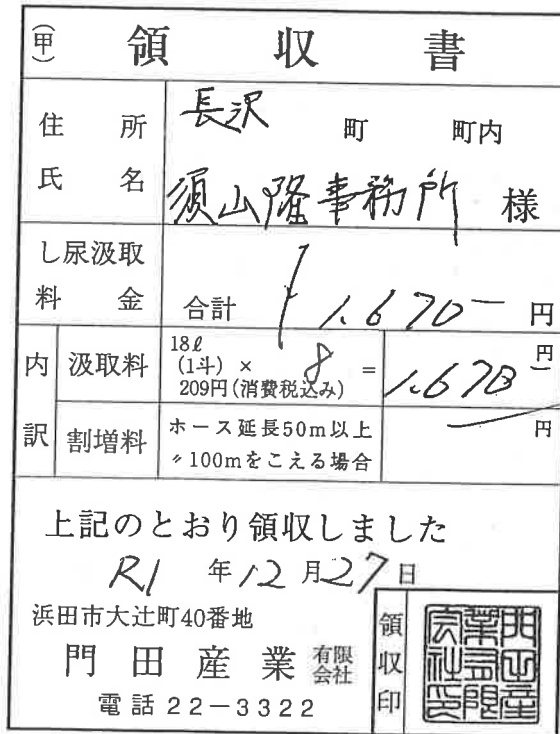 (甲) 領収書
住所 長沢 町 町内
氏名 須山隆事務所 様
し尿汲取料金 合計 1,670- 円
内訳 汲取料 18ℓ(1斗)×209円(消費税込み) 8 = 1,670 円
割増料 ホース延長50m以上 〃100mをこえる場合 円
上記のとおり領収しました
R1 年 12 月 27 日
浜田市大辻町40番地
門田産業 有限会社
電話 22-3322
領収印
門田産業有限会社印